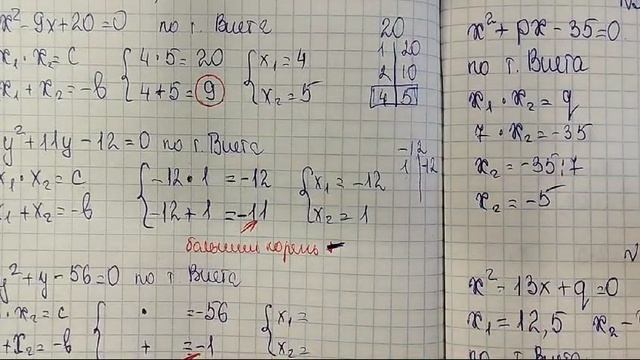 x² - 9x + 20 = 0 по т. Виета
x₁ · x₂ = c { 4 · 5 = 20 { x₁ = 4
x₁ + x₂ = -b { 4 + 5 = 9 { x₂ = 5
20
1 | 20
2 | 10
4 | 5
y² + 11y - 12 = 0 по т. Виета
x₁ · x₂ = c { -12 · 1 = -12 { x₁ = -12
x₁ + x₂ = -b { -12 + 1 = -11 { x₂ = 1
-12
1 | -12
больший корень
y² + y - 56 = 0 по т. Виета
· x₂ = c { · = -56 { x₁ =
+ x₂ = -b { + = -1 { x₂ =
x² + px - 35 = 0
по т. Виета
x₁ · x₂ = q
7 · x₂ = -35
x₂ = -35 : 7
x₂ = -5
x² - 13x + q = 0
x₁ = 12,5 x₂ -
по т. Виета